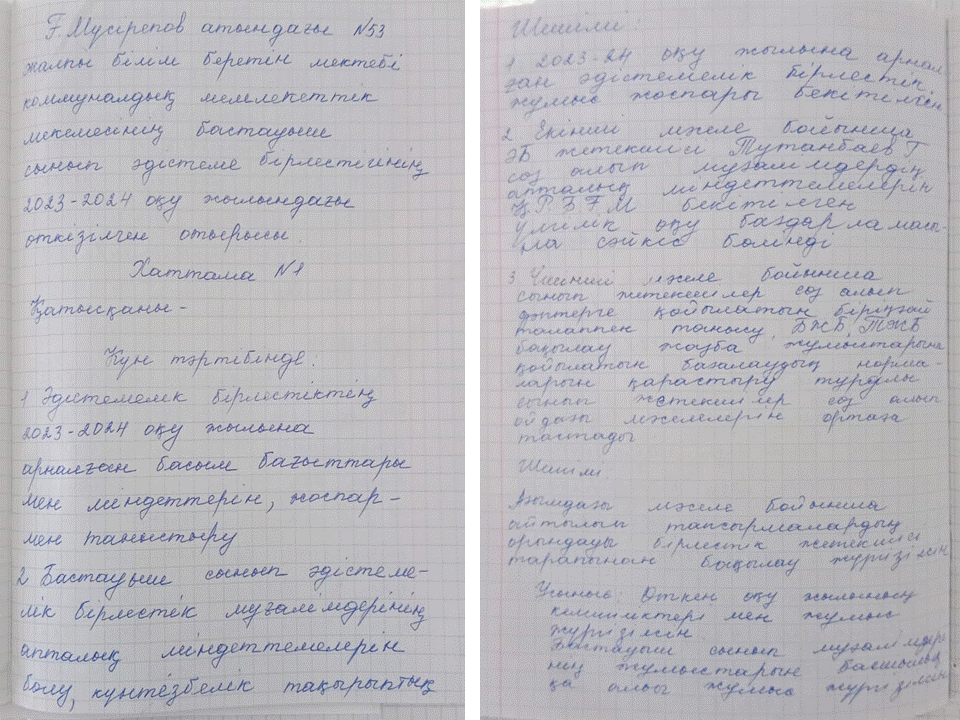 Ғ.Мүсірепов атындағы №53
жалпы білім беретін мектебі
коммуналдық мемлекеттік
мекемесінің бастауыш
сынып әдістеме бірлестігінің
2023-2024 оқу жылындағы
өткізілген отырысы.
Хаттама №1
Қатысқаны -
Күн тәртібінде:
1 Әдістемелік бірлестіктің
2023-2024 оқу жылына
арналған басым бағыттары
мен міндеттерін, жоспар-
мен таныстыру
2 Бастауыш сынып әдістеме-
лік бірлестік мұғалімдерінің
апталық міндеттемелерін
бөлу, күнтізбелік тақырыптық
Шешімі:
1 2023-24 оқу жылына арнал
ған әдістемелік бірлестік
жұмыс жоспары бекітілген
2 Екінші мәселе бойынша
ӘБ жетекшісі Тутанбаев Г
сөз алып мұғалімдердің
апталық міндеттемелерін
Қ.Р.Б.Ғ.М бекітілген
үлгілік оқу бағдарламасы-
на сәйкес бөлінді
3 Үшінші мәселе бойынша
сынып жетекшілер сөз алып
дәптерге қойылатын бірыңғай
талаппен танысу, БЖБ, ТЖБ
бақылау жазба жұмыстарына
қойылатын бағалаудың норма-
ларын қарастыру туралы
сынып жетекшілер сөз алып
ойдағы мәселелерін ортаға
тастады
Шешімі:
Ағымдағы мәселе бойынша
айтылып тапсырмалардың
орындауы бірлестік жетекшісі
тарапынан бақылау жүргізілсін
Ұсыныс: Өткен оқу жылының
кемшіліктері мен жұмыс
жүргізілсін.
Бастауыш сынып мұғалімдері
нің жұмыстарына басшылық
қа алып жұмыс жүргізілсін